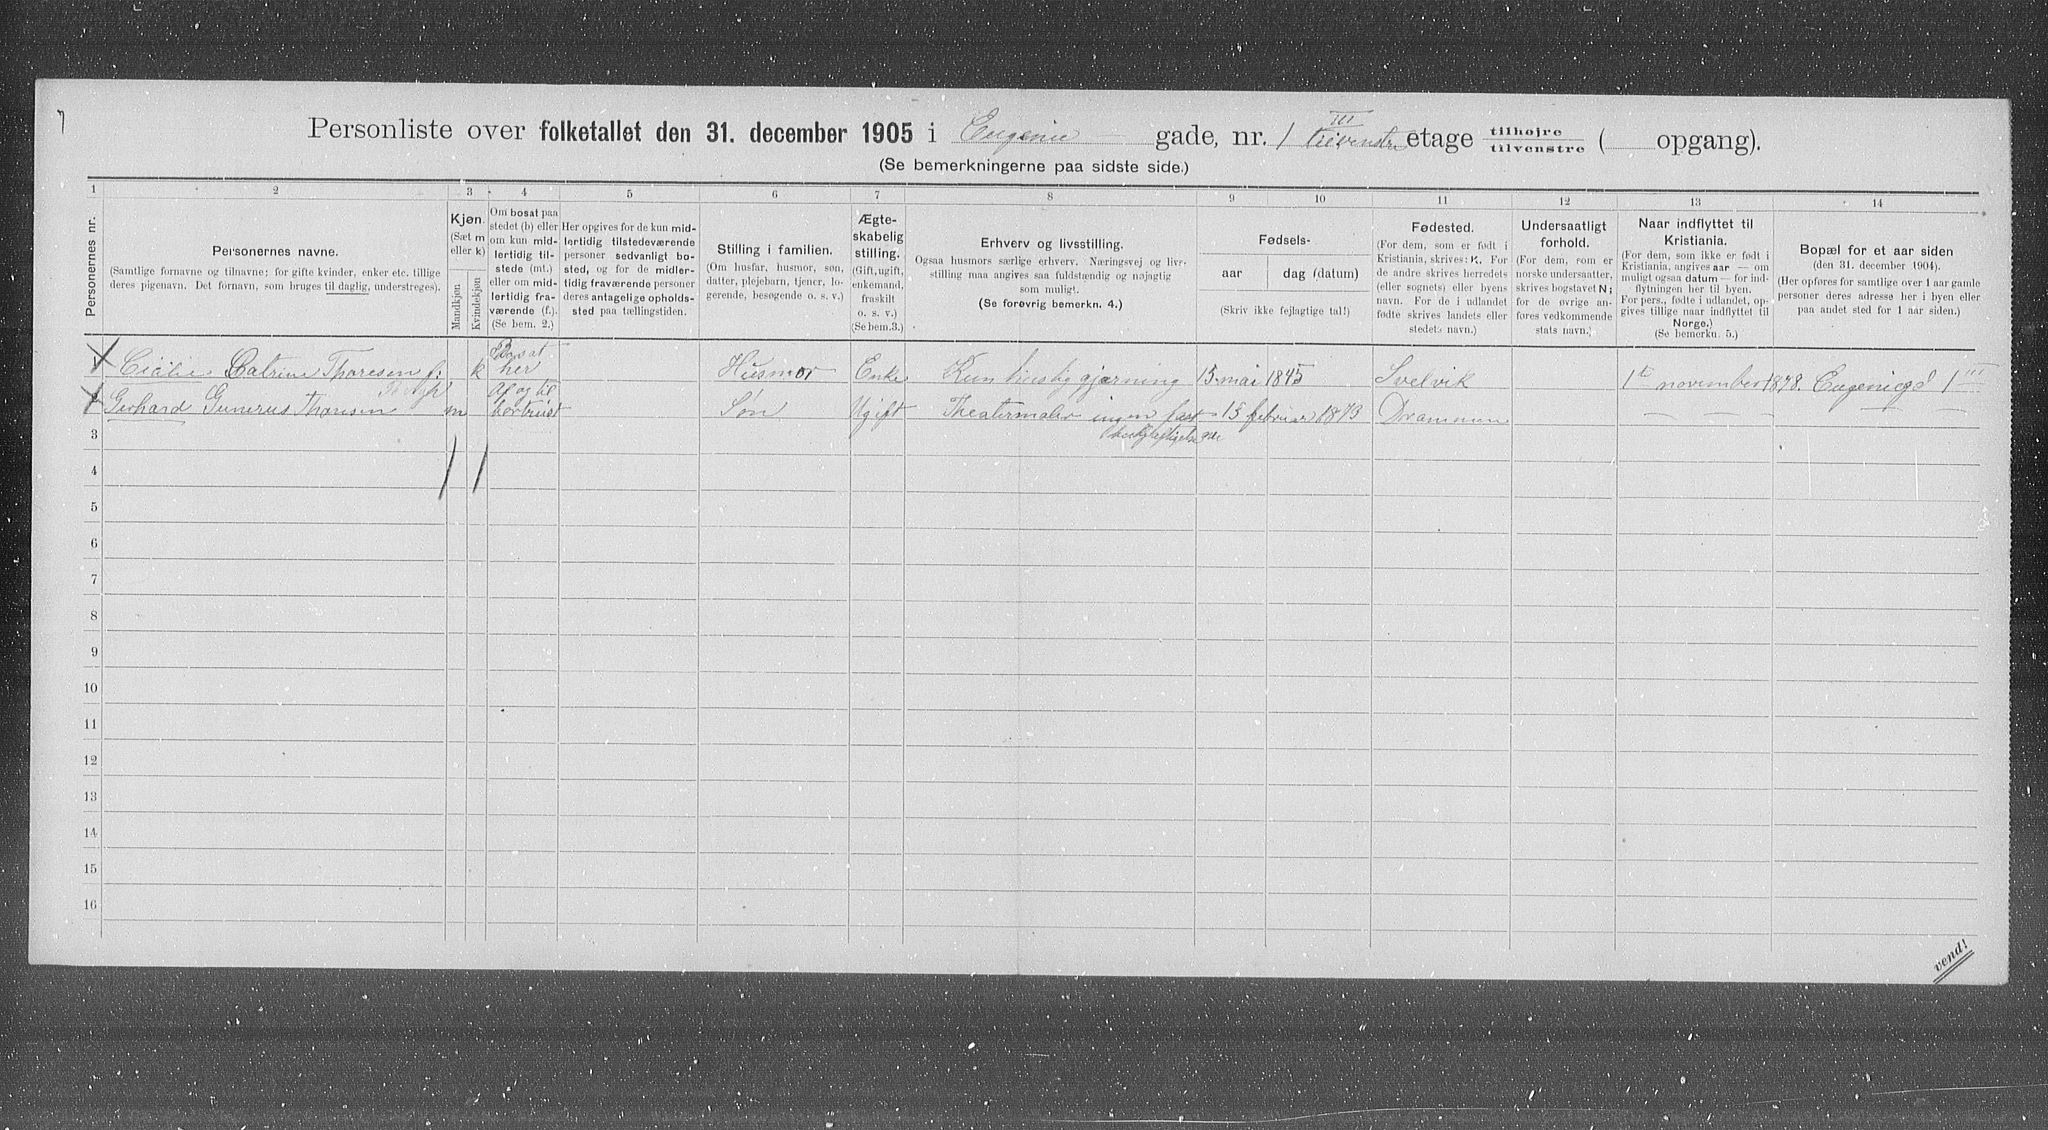 7
III
Personliste over folketallet den 31. december 1905 i Eugenie gade, nr. 1 tilvenstre etage tilhøjre tilvenstre ( opgang).
(Se bemerkningerne paa sidste side.)
1 2 3 4 5 6 7 8 9 10 11 12 13 14
Personernes nr.
Personernes navne.
(Samtlige fornavne og tilnavne; for gifte kvinder, enker etc. tillige
deres pigenavn. Det fornavn, som bruges til daglig, understreges).
Kjøn.
(Sæt m
eller k)
Mandkjøn
Kvindekjøn
Om bosat paa
stedet (b) eller
om kun mid-
lertidig til-
stede (mt.)
eller om mid-
lertidig fra-
værende (f.).
(Se bem. 2.)
Her opgives for de kun mid-
lertidig tilstedeværende
personer sedvanligt bo-
sted, og for de midler-
tidig fraværende personer
deres antagelige opholds-
sted paa tællingstiden.
Stilling i familien.
(Om husfar, husmor, søn,
datter, plejebarn, tjener, lo-
gerende, besøgende o. s. v.)
Ægte-
skabelig
stilling.
(Gift, ugift,
enkemand,
fraskilt
o. s. v.)
(Se bem.3.)
Erhverv og livsstilling.
Ogsaa husmors særlige erhverv. Næringsvej og liv-
stilling maa angives saa fuldstændig og nøjagtig
som muligt.
(Se forøvrig bemerkn. 4.)
Fødsels-
aar
dag (datum)
(Skriv ikke fejlagtige tal!)
Fødested.
(For dem, som er født i
Kristiania, skrives: K. For
de andre skrives herredets
(eller sognets) eller byens
navn. For de i udlandet
fødte skrives landets eller
stedets navn.)
Undersaatligt
forhold.
(For dem, som er
norske undersaatter,
skrives bogstavet N;
for de øvrige an-
føres vedkommende
stats navn.)
Naar indflyttet til
Kristiania.
(For dem, som ikke er født i
Kristiania, angives aar — om
muligt ogsaa datum — for ind-
flytningen her til byen.
For pers., fødte i udlandet, op-
gives tillige naar indflyttet til
Norge.)
(Se bemerkn. 5.)
Bopæl for et aar siden
(den 31. december 1904).
(Her opføres for samtlige over 1 aar gamle
personer deres adresse her i byen eller
paa andet sted for 1 aar siden.)
1 Cicilie Catrine Thoresen f. k Bosat her Husmor Enke Kun huslig gjærning 15 mai 1845 Svelvik 1te november 1878. Eugenieg 1 III
2 Gerhard Gunerus Thoresen m Af og til bortreist Søn Ugift Theatermaler ingen fast 15 februar 1873 Drammen — — — —
3
4
5
6
7
8
9
10
11
12
13
14
15
16
vend!